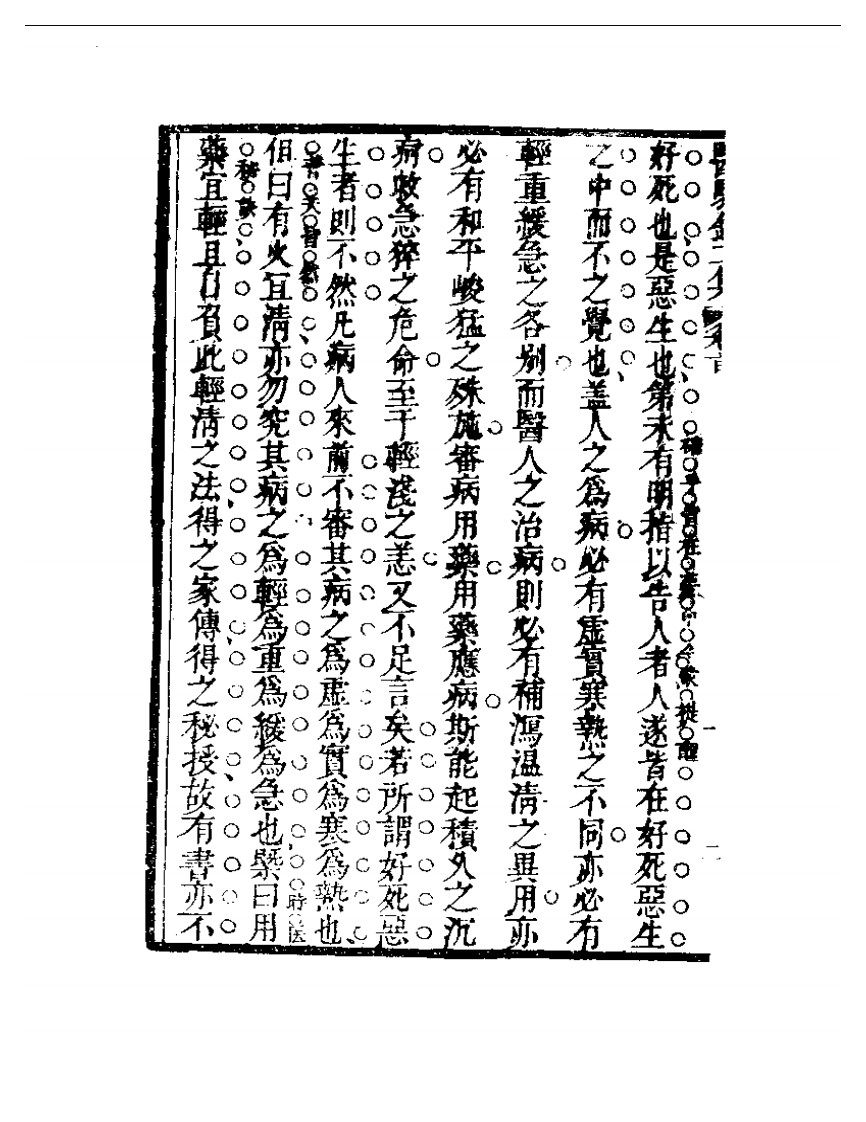 好死也是惡生也第未有明指以告人者人遂皆在好死惡生
之中而不之覺也盖人之爲病必有虛實寒熱之不同亦必有
輕重緩急之各別而醫人之治病則必有補瀉温淸之異用亦
必有和平峻猛之殊施審病用藥用藥應病斯能起積久之沉
病救急猝之危命至于輕淺之恙又不足言矣若所謂好死惡
生者則不然凡病人來前不審其病之爲虛爲實爲寒爲熱也
但曰有火宜淸亦勿究其病之爲輕爲重爲緩爲急也槩曰用
藥宜輕且自負此輕淸之法得之家傳得之秘授故有書亦不